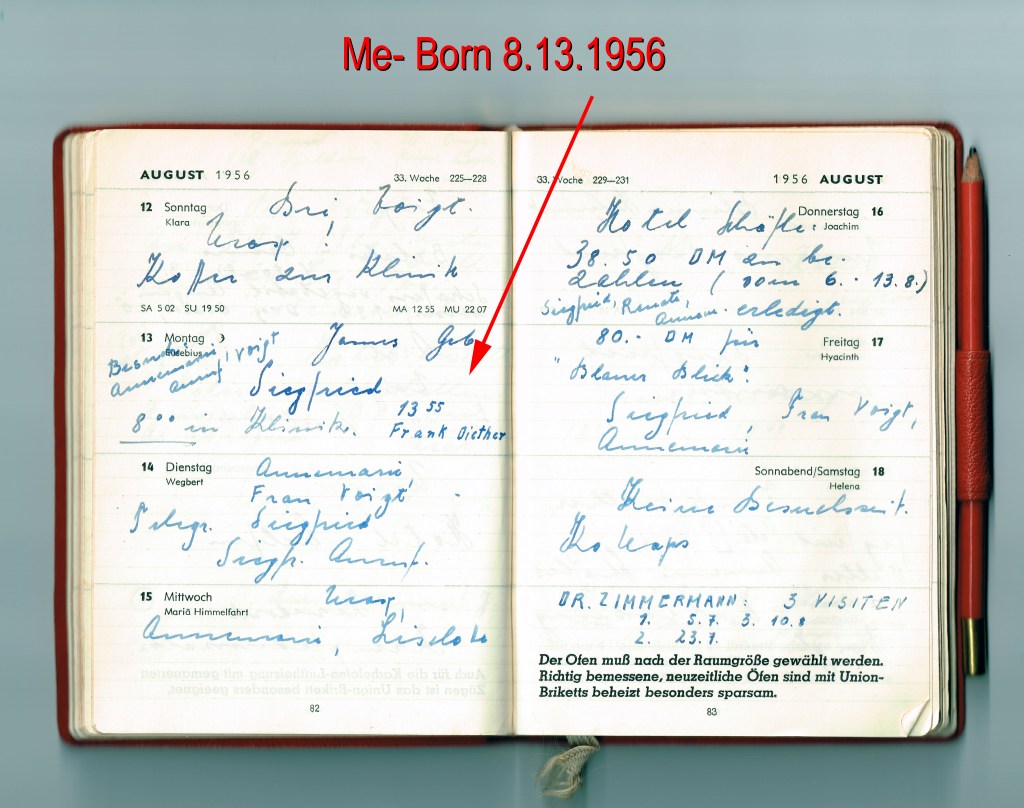 Me- Born 8.13.1956
AUGUST 1956
33. Woche 225—228
12 Sonntag
Klara
Bei Voigt.
!
Koffer zur Klinik
SA 5 02 SU 19 50
MA 12 55 MU 22 07
13 Montag
Eusebius
Besuch:
Annemarie, Voigt
Anruf
Geb.
Siegfried
13 55
8°° in Klinik.
Frank Diether
14 Dienstag
Wegbert
Annemarie,
Frau Voigt
Telegr. Siegfried
Siegfr. Anruf.
15 Mittwoch
Mariä Himmelfahrt
Annemarie, Liselotte
82
33. Woche 229—231
1956 AUGUST
Donnerstag 16
Joachim
Hotel
38.50 DM an be-
zahlen ( vom 6. - 13.8.)
Siegfried, Renate,
Annem. erledigt.
Freitag 17
Hyacinth
80.- DM für
"Blauer Blick".
Siegfried, Frau Voigt,
Annemarie
Sonnabend/Samstag 18
Helena
Keine Besuchszeit.
DR. ZIMMERMANN: 3 VISITEN
1. 5.7. 3. 10.8
2. 23.7.
Der Ofen muß nach der Raumgröße gewählt werden.
Richtig bemessene, neuzeitliche Öfen sind mit Union-
Briketts beheizt besonders sparsam.
83